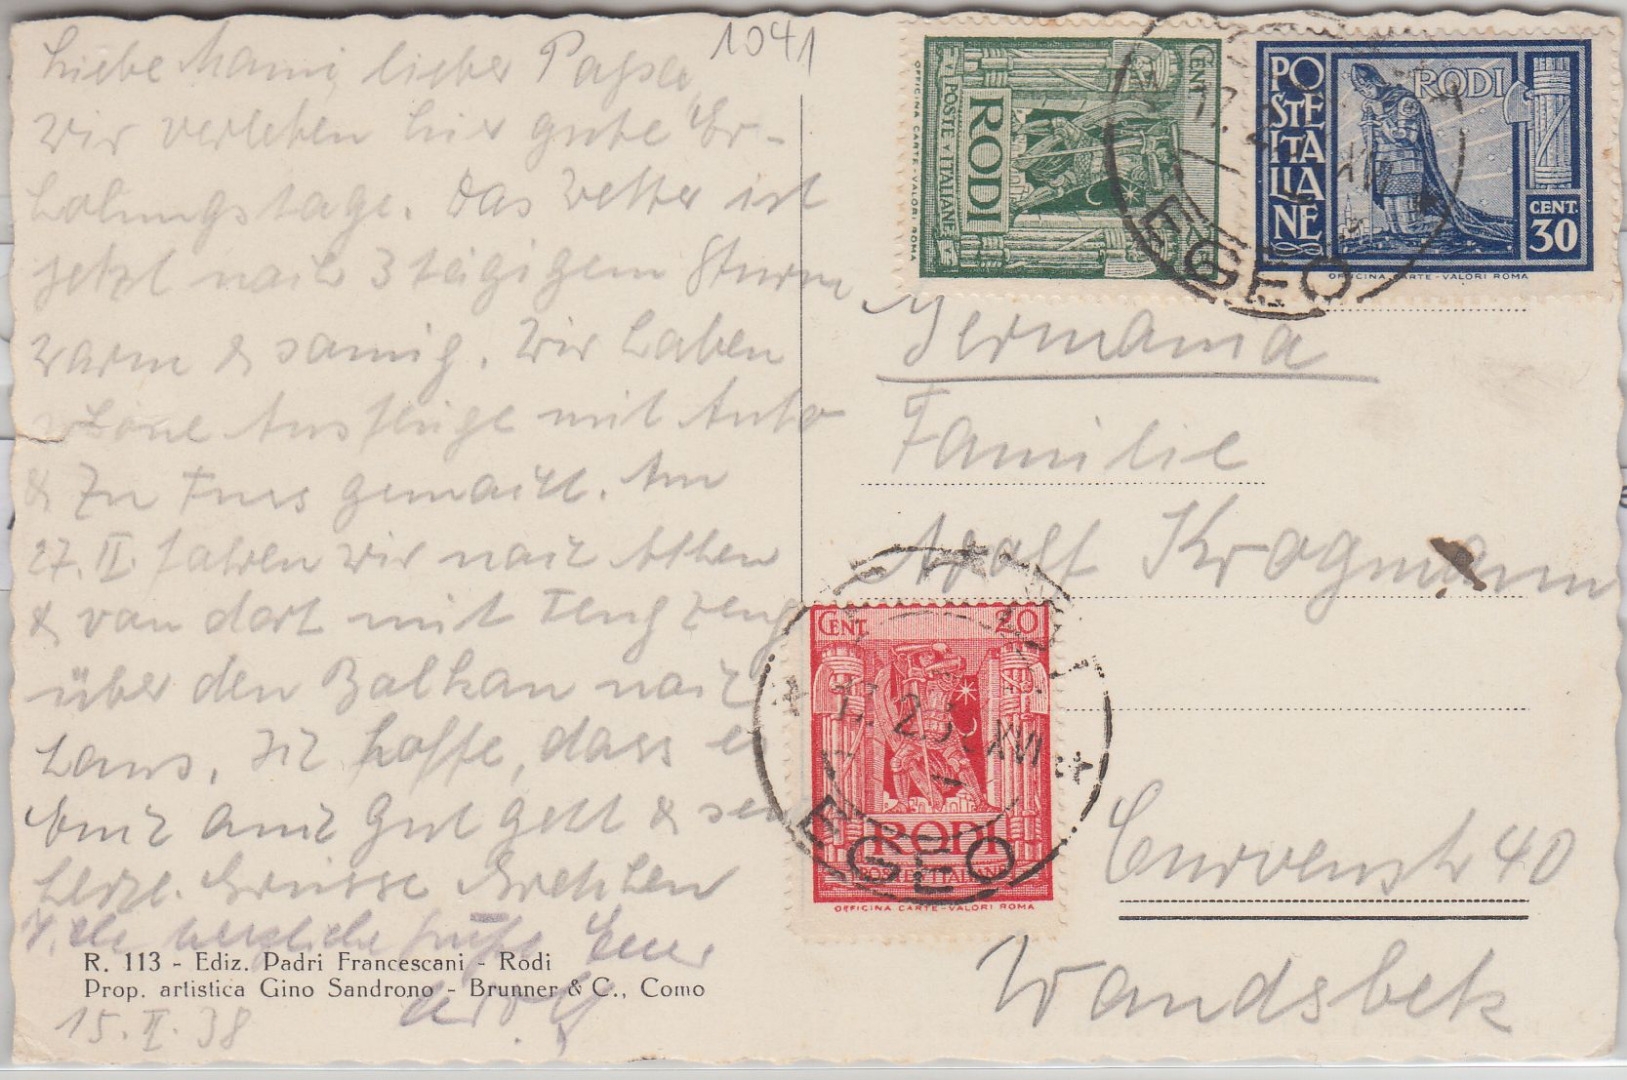 1041
Liebe Mami, lieber Papa
wir verleben hier gute Er-
holungstage. Das Wetter ist
jetzt nach 3 tägigem Sturm
warm & sonnig. Wir haben
schöne Ausflüge mit Auto
& zu Fuss gemacht. Am
27. II fahren wir nach Athen
& von dort mit
über den Balkan nach
Haus. Ich hoffe, dass es
Euch auch gut geht & sende
herzl. Grüsse Gretchen
Viele herzliche Grüße Euer
R. 113 - Ediz. Padri Francescani - Rodi
Prop. artistica Gino Sandrono - Brunner & C., Como
15. II. 38
CENT
RODI
POSTE ITALIANE
OFFICINA CARTE-VALORI ROMA
POSTE ITALIANE
RODI
CENT.
30
OFFICINA CARTE-VALORI ROMA
EGEO
Germania
Familie
Adolf Krogmann
CENT 20
17. 2. XVI
RODI
POSTE ITALIANE
OFFICINA CARTE-VALORI ROMA
EGEO
Curvenstr 40
Wandsbek